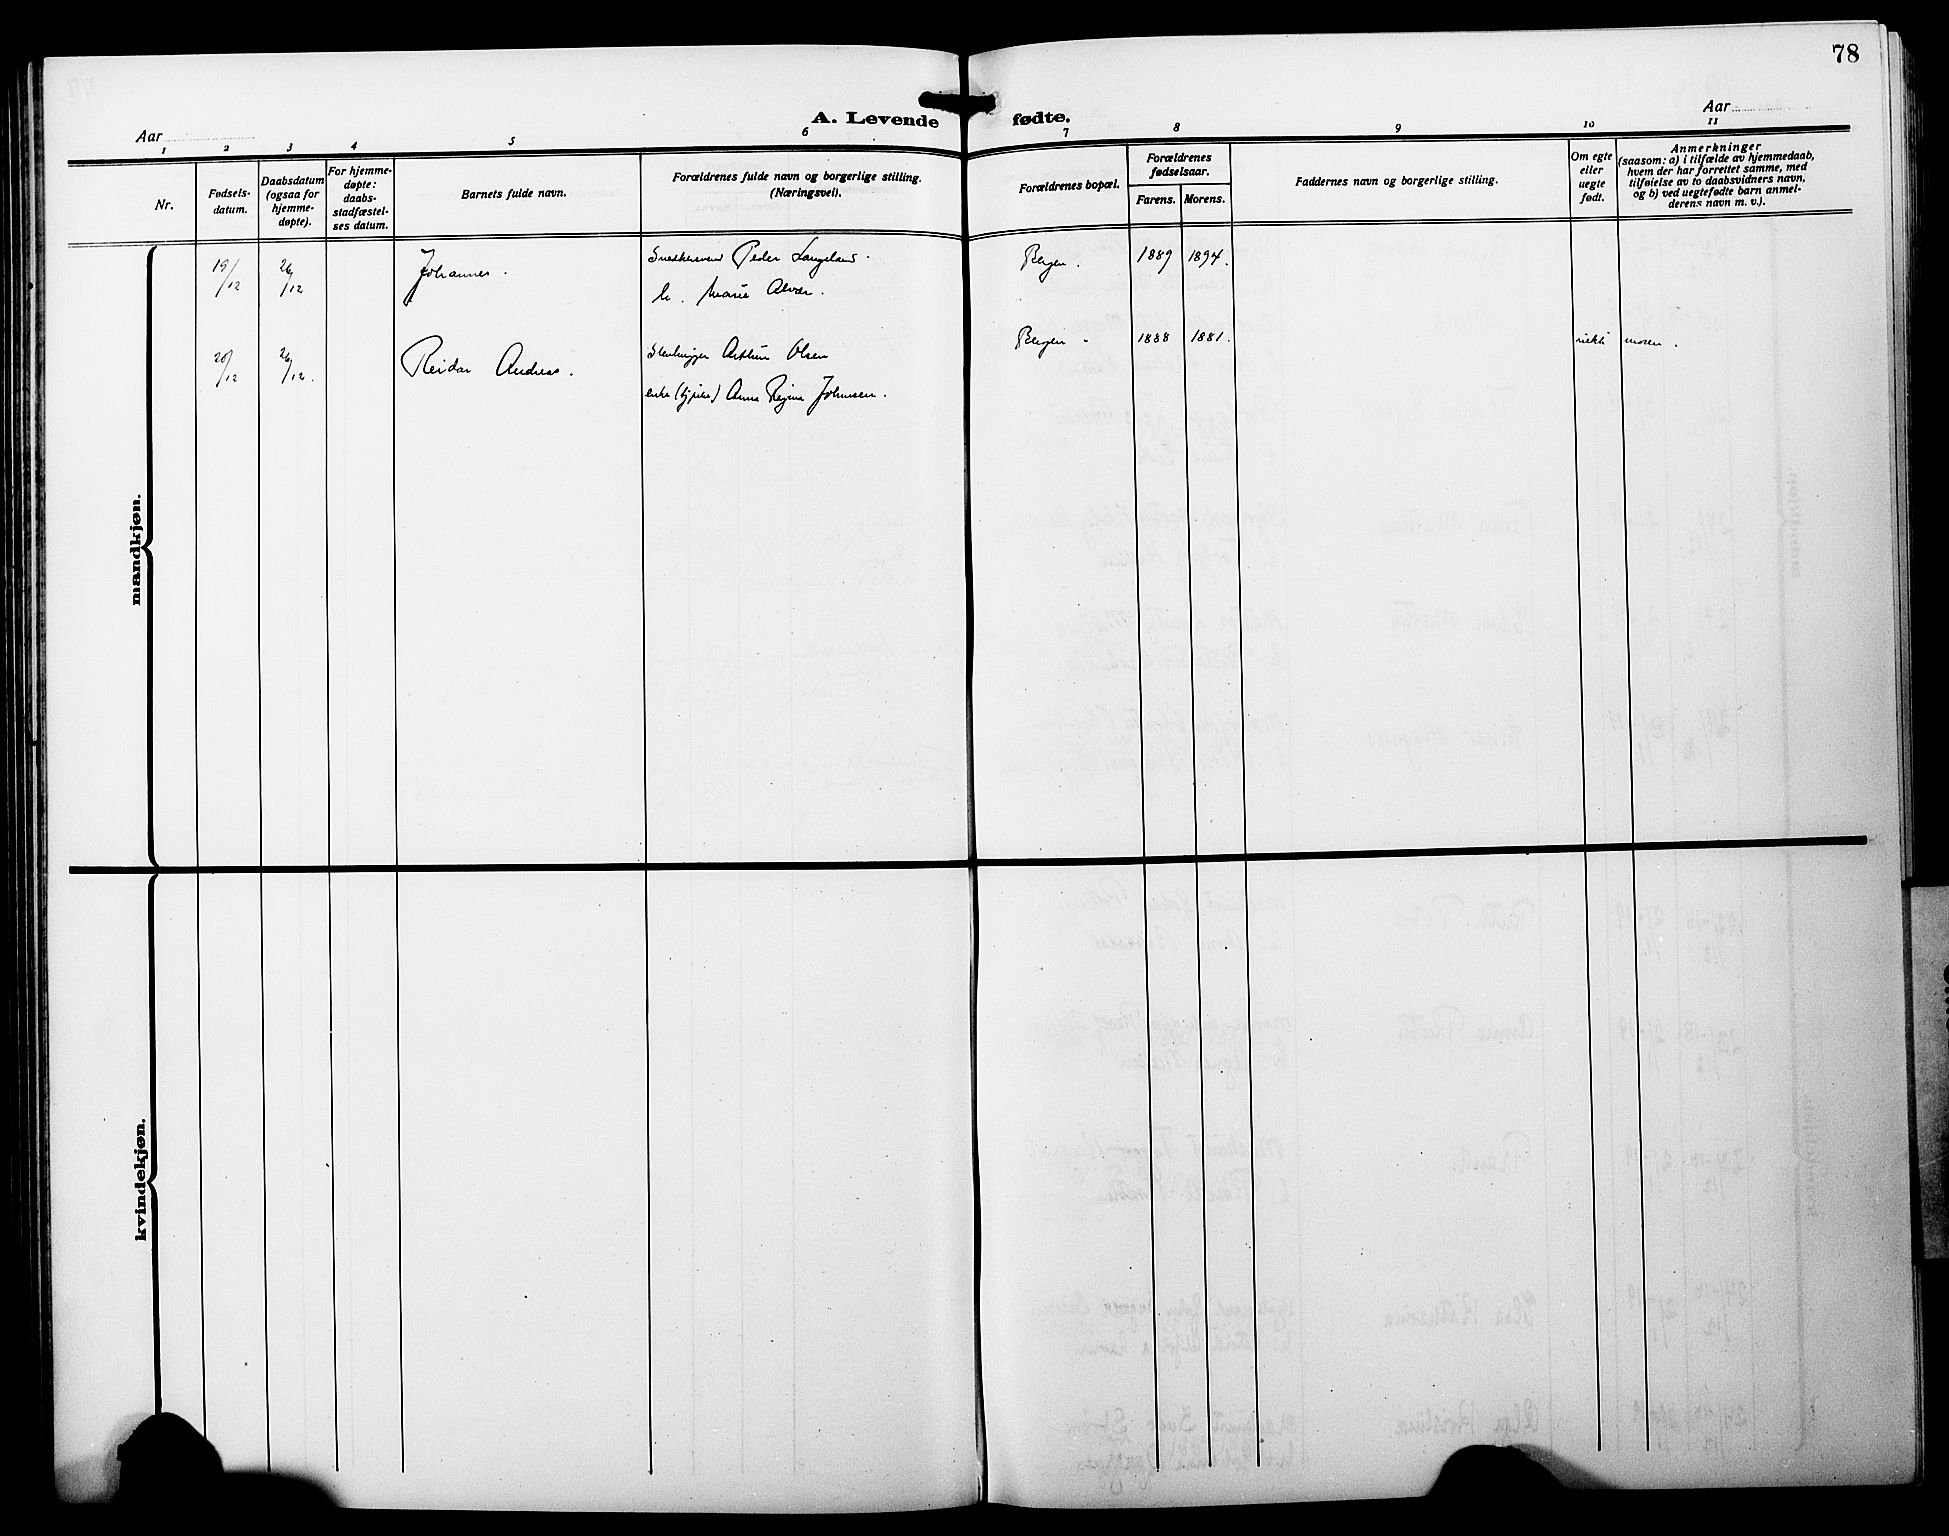 78
A. Levende fødte.
Aar
Aar
1 2 3 4 5 6 7 8 9 10 11
Nr.
Fødsels-
datum.
Daabsdatum
(ogsaa for
hjemme-
døpte).
For hjemme-
døpte:
daabs-
stadfæstel-
ses datum.
Barnets fulde navn.
Forældrenes fulde navn og borgerlige stilling.
(Næringsvei).
Forældrenes bopæl.
Forældrenes
fødselsaar.
Farens. Morens.
Faddernes navn og borgerlige stilling.
Om egte
eller
uegte
født.
Anmerkninger
(saasom: a) i tilfælde av hjemmedaab,
hvem der har forrettet samme, med
tilføielse av to daabsvidners navn,
og b) ved uegtefødte barn anmel-
derens navn m. v.).
mandkjøn.
19/12 26/12 Johannes. Snedkersvend Peder Langeland. Bergen. 1889 1894.
h. Marie Alvær.
20/12 26/12. Reidar Andreas. Arthur Olsen Bergen 1888 1881. uekte moren.
enke Anna Regine Johnsen.
kvindekjøn.